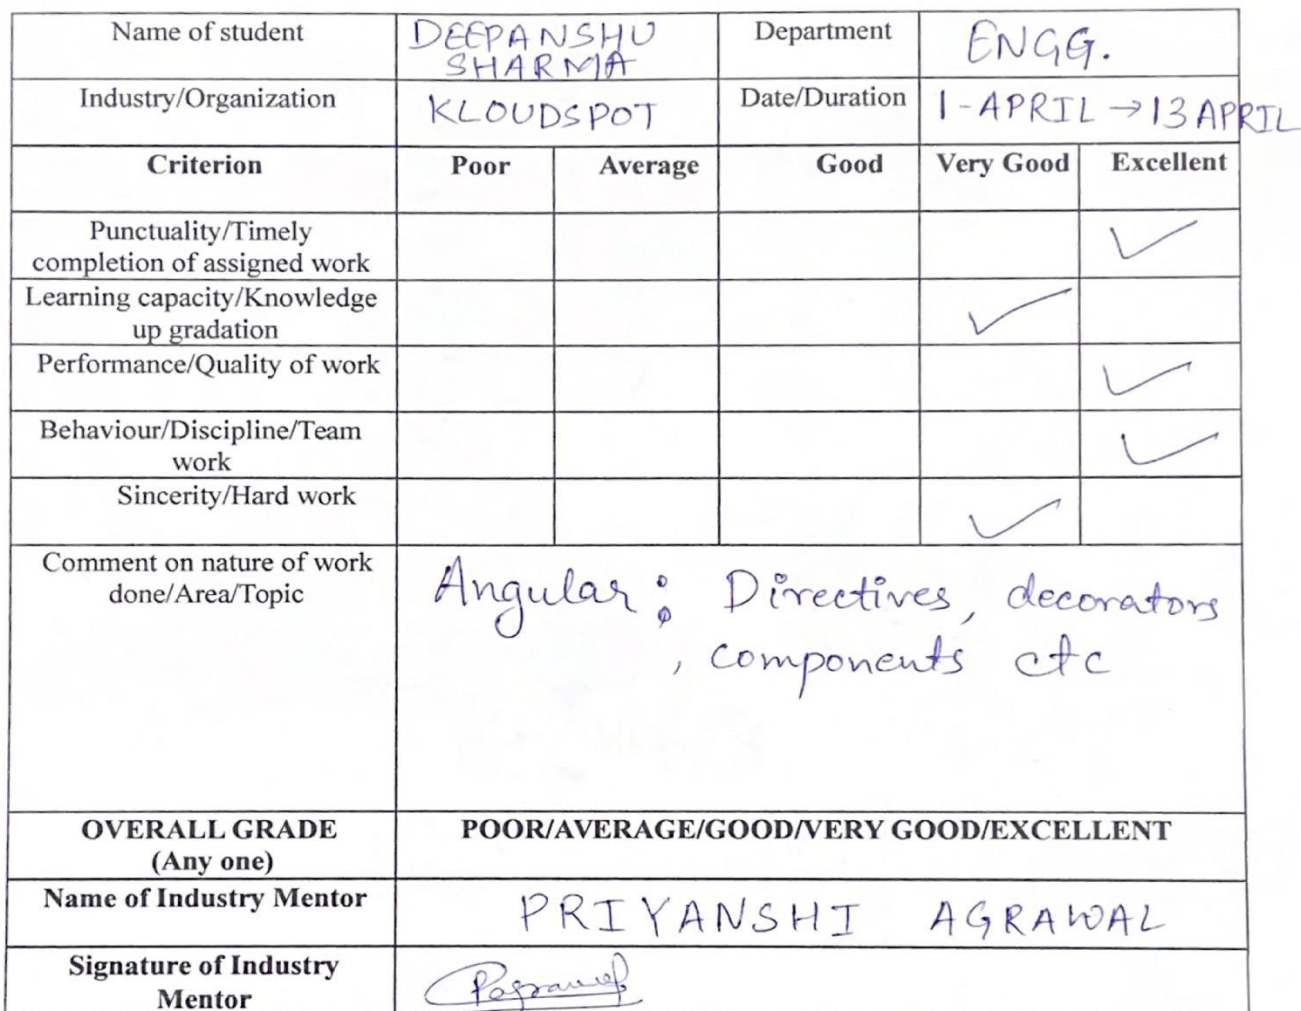 Name of student DEEPANSHU SHARMA Department ENGG.
Industry/Organization KLOUDSPOT Date/Duration 1-APRIL → 13 APRIL
Criterion Poor Average Good Very Good Excellent
Punctuality/Timely
completion of assigned work ✓
Learning capacity/Knowledge
up gradation ✓
Performance/Quality of work ✓
Behaviour/Discipline/Team
work ✓
Sincerity/Hard work ✓
Comment on nature of work
done/Area/Topic
Angular : Directives, decorators
, components etc
OVERALL GRADE
(Any one)
POOR/AVERAGE/GOOD/VERY GOOD/EXCELLENT
Name of Industry Mentor PRIYANSHI AGRAWAL
Signature of Industry
Mentor